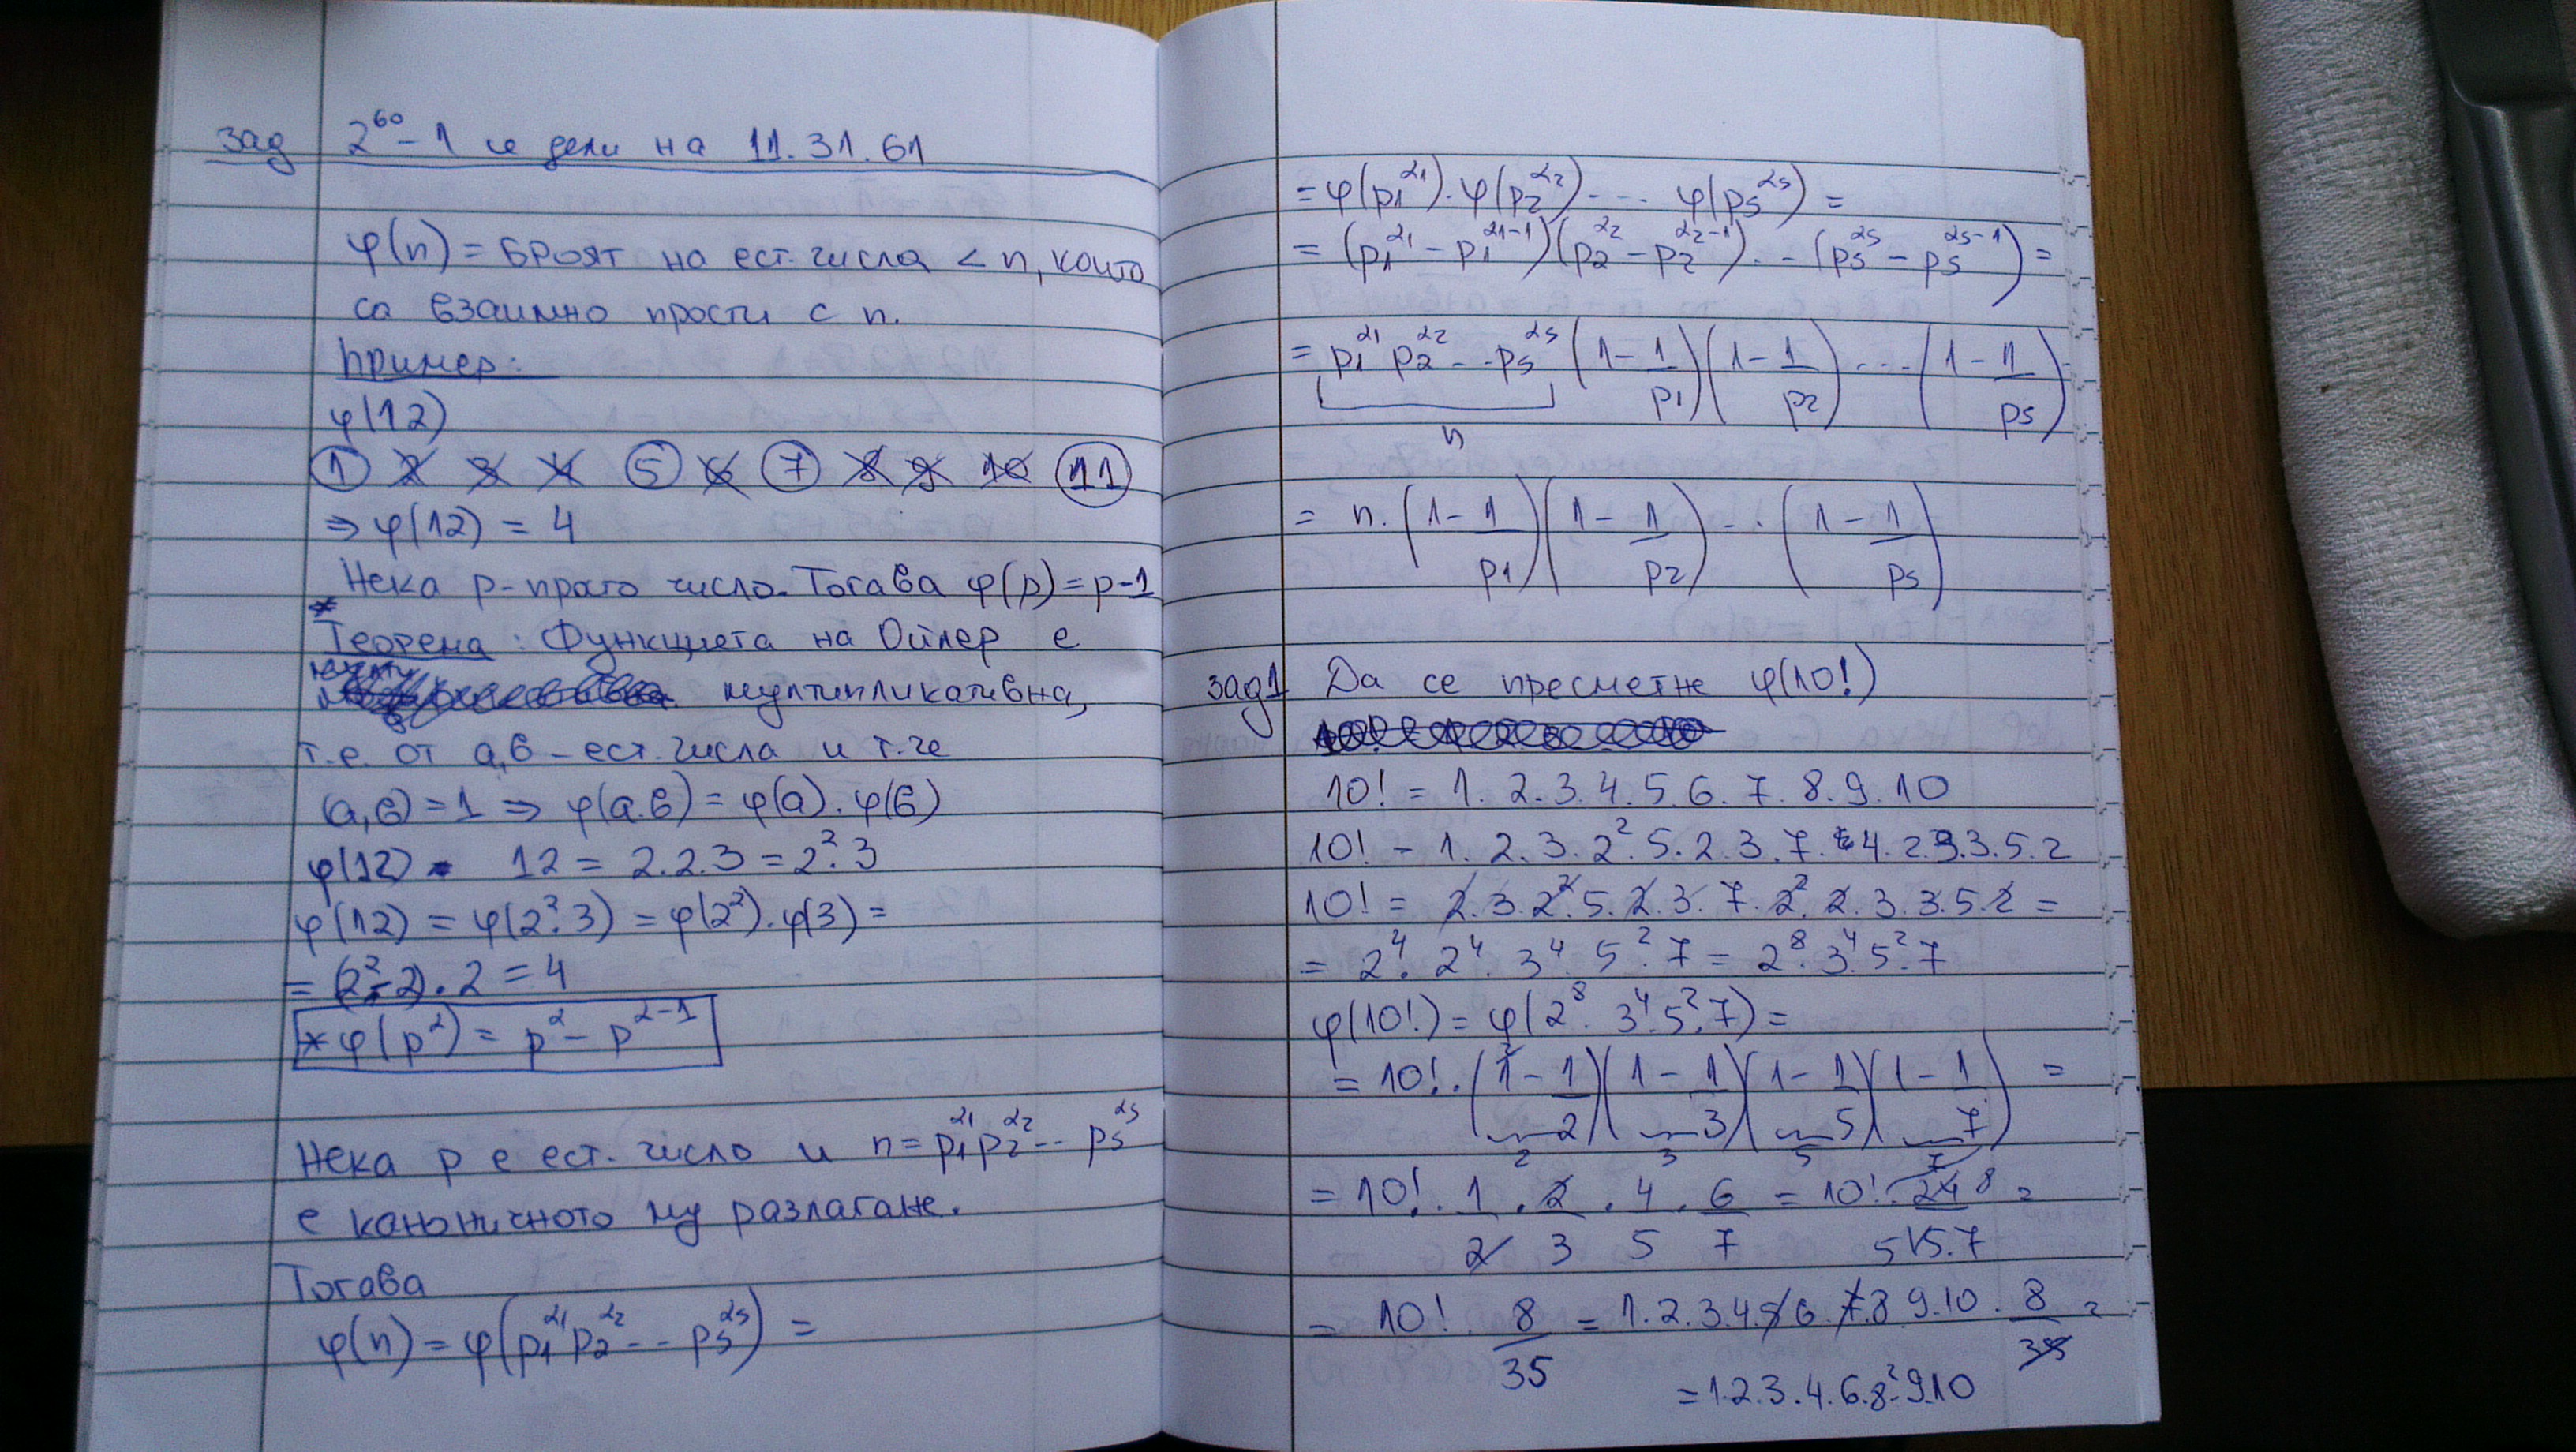 зад 2^60 - 1 се дели на 11.31.61
φ(n) = БРОЯТ на ест. числа < n, които
са взаимно прости с n.
Пример:
φ(12)
1 2 3 4 5 6 7 8 9 10 11
⇒ φ(12) = 4
Нека p - просто число. Тогава φ(p) = p-1
* Теорема: Функцията на Ойлер е
мултипликативна,
т.е. от a,b - ест. числа и т.че
(a,b) = 1 ⇒ φ(a.b) = φ(a).φ(b)
φ(12) 12 = 2.2.3 = 2^2.3
φ(12) = φ(2^2.3) = φ(2^2).φ(3) =
= (2^2-2).2 = 4
* φ(p^2) = p^2 - p^{2-1}
Нека p е ест. число и n = p1^α1 p2^α2 ... ps^αs
е каноничното му разлагане.
Тогава
φ(n) = φ(p1^α1 p2^α2 ... ps^αs) =
= φ(p1^α1).φ(p2^α2) ... φ(ps^αs) =
= (p1^α1 - p1^{α1-1})(p2^α2 - p2^{α2-1}) ... (ps^αs - ps^{αs-1}) =
= p1^α1 p2^α2 ... ps^αs (1 - 1/p1)(1 - 1/p2) ... (1 - 1/ps)
n
= n.(1 - 1/p1)(1 - 1/p2) ... (1 - 1/ps)
зад1 Да се пресметне φ(10!)
10! = 1.2.3.4.5.6.7.8.9.10
10! = 1.2.3.2^2.5.2.3.7.4.2.3.3.5.2
10! = 2.3.2^2.5.2.3.7.2^2.2.3.3.5.2 =
= 2^4.2^4.3^4.5^2.7 = 2^8.3^4.5^2.7
φ(10!) = φ(2^8.3^4.5^2.7) =
= 10!.(1 - 1/2)(1 - 1/3)(1 - 1/5)(1 - 1/7) =
2 3 5 7
= 10!.1/2.2/3.4/5.6/7 = 10!.24 8/5 15.7 =
= 10!.8/35 = 1.2.3.4.5.6.7.8.9.10.8/35 =
= 1.2.3.4.6.8^2.9.10